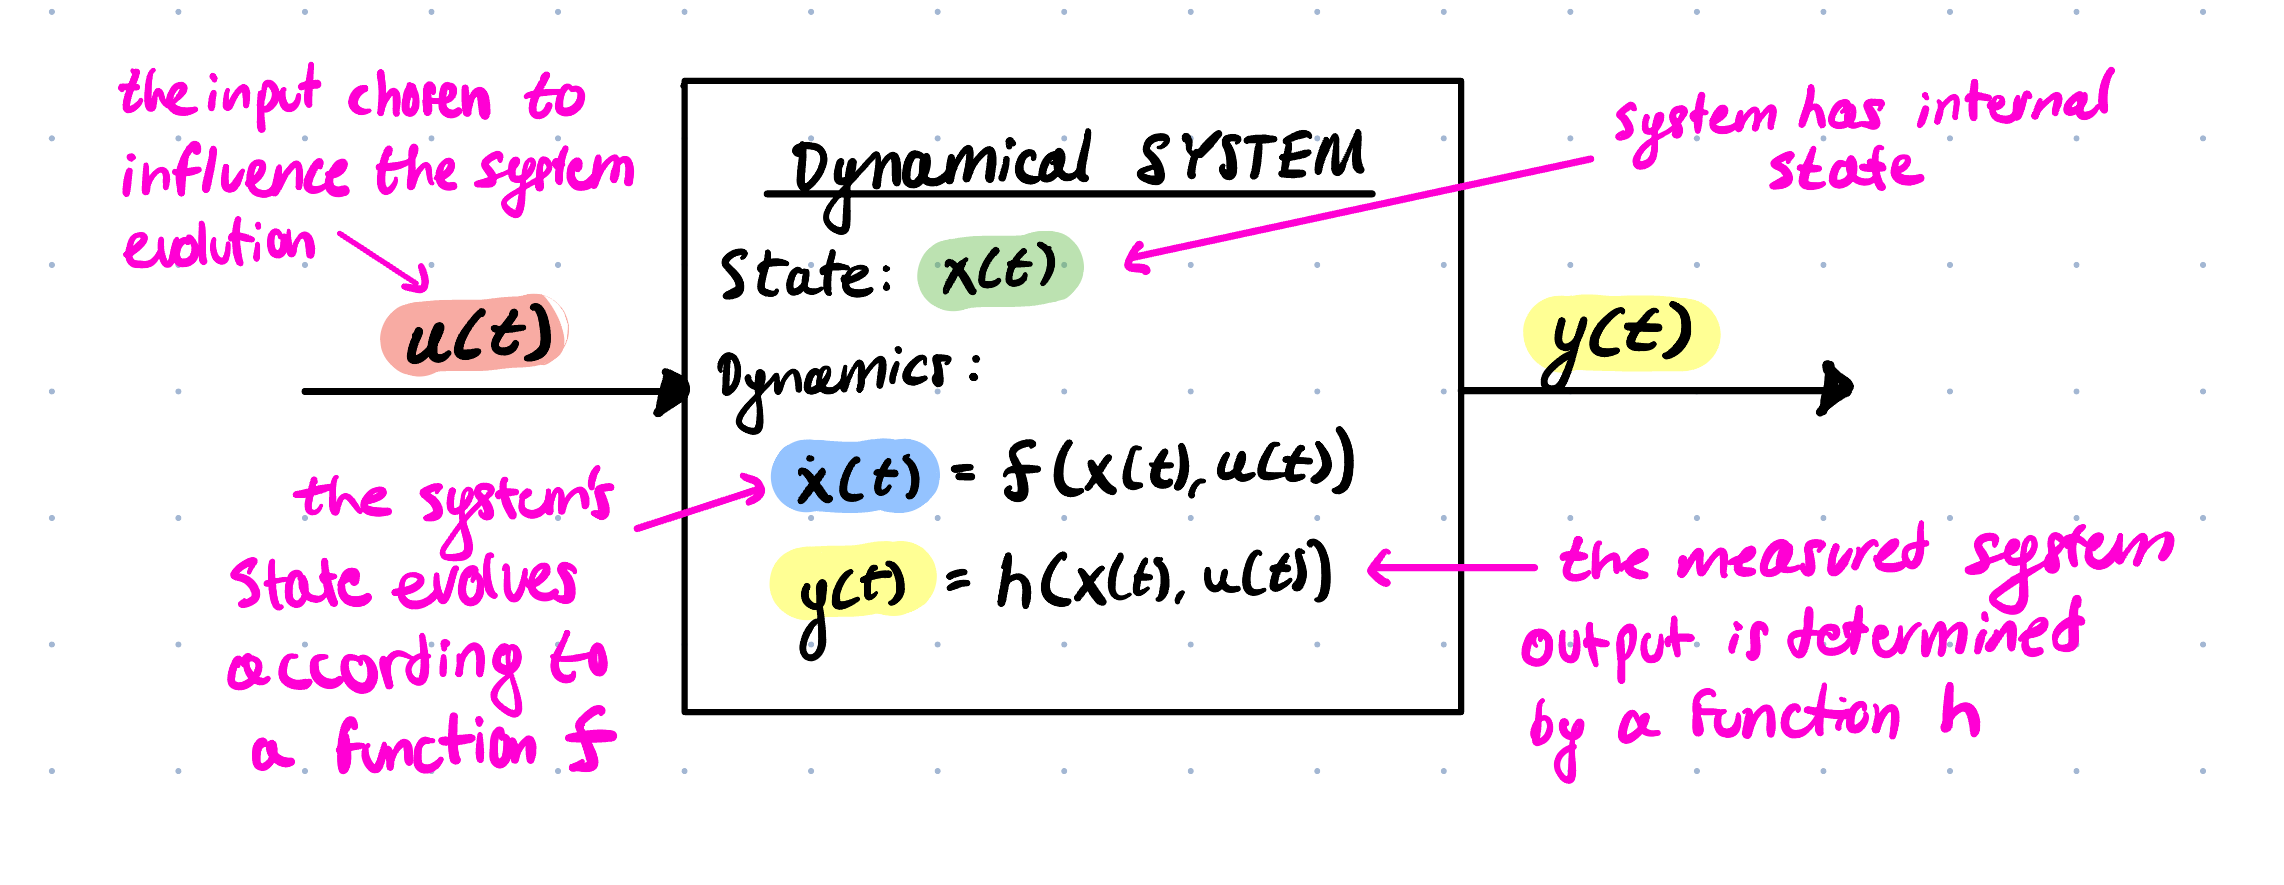 the input chosen to
influence the system
evolution
u(t)
the system's
state evolves
according to
a function f
Dynamical SYSTEM
State: x(t)
Dynamics:
ẋ(t) = f(x(t), u(t))
y(t) = h(x(t), u(t))
system has internal
state
y(t)
the measured system
output is determined
by a function h